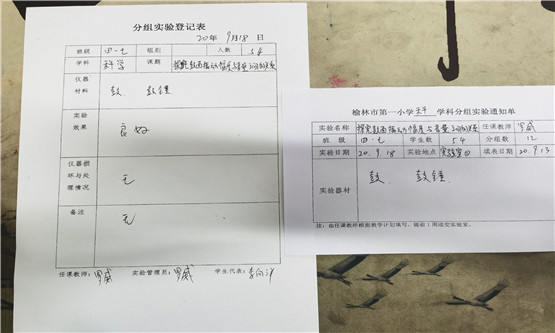 分组实验登记表
20年 9月18日
班级 四·七 组别 人数 54
学科 科学 课题 探究鼓面振动幅度与音量之间的关系
仪器
材料
鼓 鼓锤
实验
效果
良好
仪器损
坏与处
理情况
无
备注
无
任课教师：罗威 实验管理员：罗威 学生代表：
榆林市第一小学科学学科分组实验通知单
实验名称 探究鼓面振动幅度与音量之间的关系 任课教师 罗威
班 级 四·七 学生数 54 分组数 12
实验日期 20.9.18 实验地点 实验室 填表日期 20.9.13
实验器材
鼓 鼓锤
注：由任课教师根据教学计划填写，提前1周送交实验室。